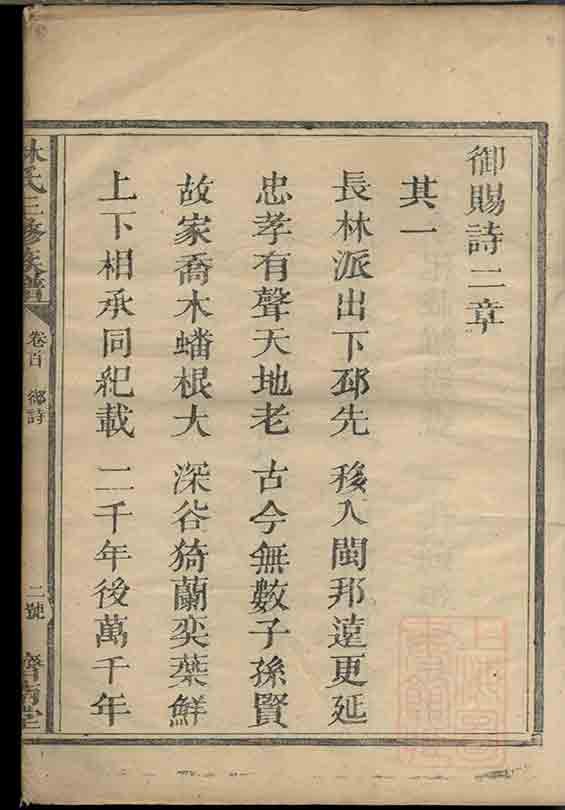 御賜詩二章
其一
長林派出下邳先　移入閩邦遠更延
忠孝有聲天地老　古今無數子孫賢
故家喬木蟠根大　深谷猗蘭奕葉鮮
上下相承同紀載　二千年後萬千年
林氏三修族譜　卷首　御詩　二號　濟南堂